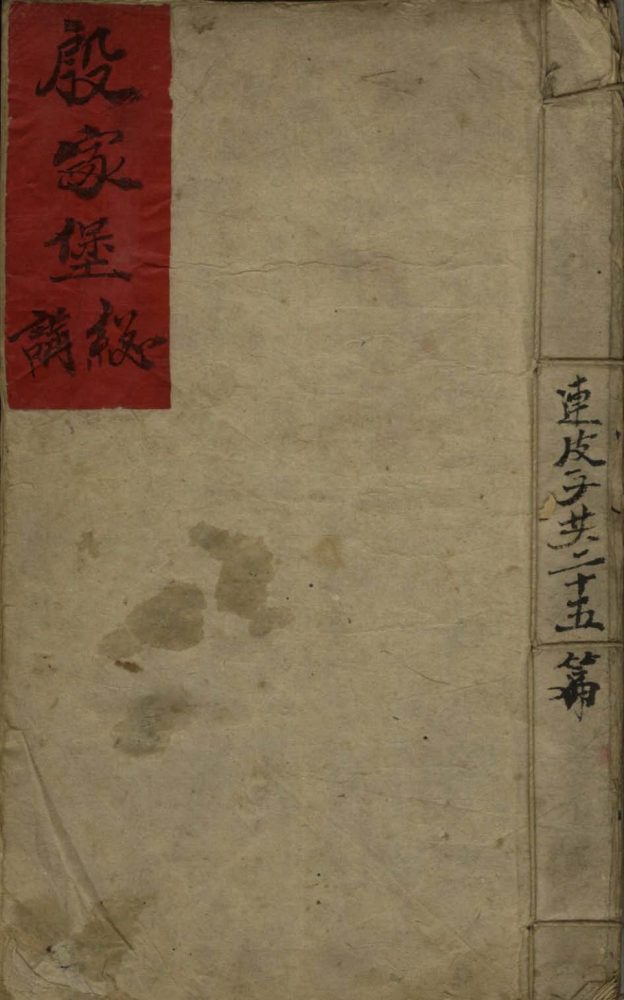 殷家堡
総講
連皮子共二十五篇